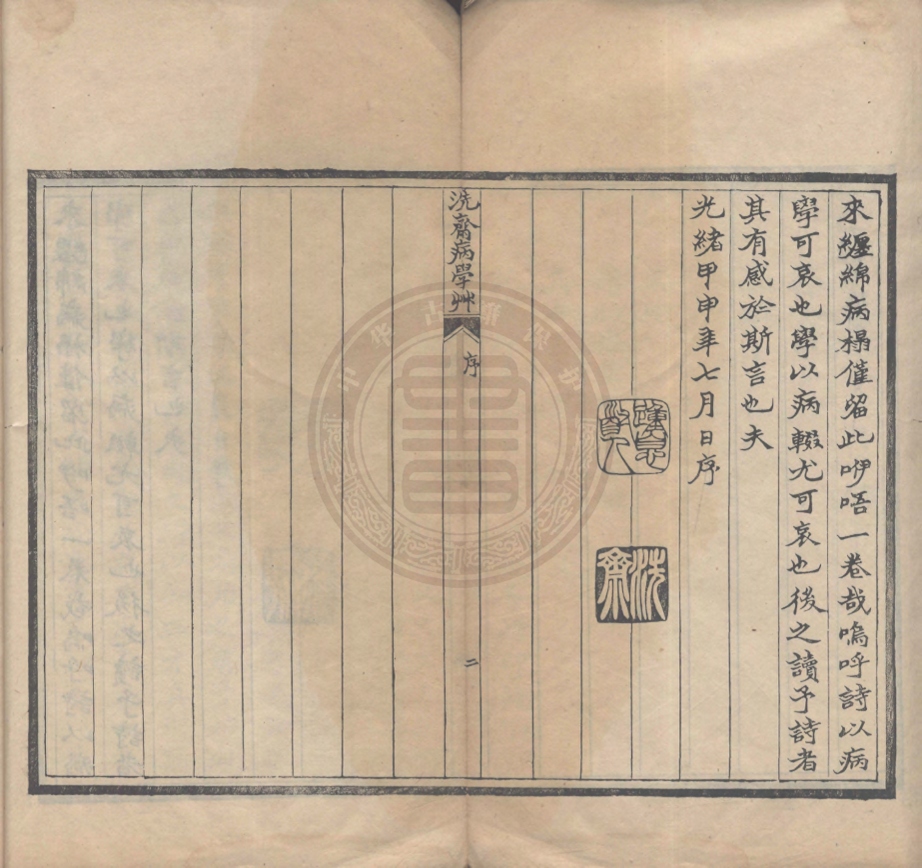 來纏綿病榻僅留此咿唔一卷哉嗚呼詩以病
學可哀也學以病輟尤可哀也後之讀予詩者
其有感於斯言也夫
光緒甲申年七月日序
洗齋
洗齋病學艸
序
二
中华古籍保护